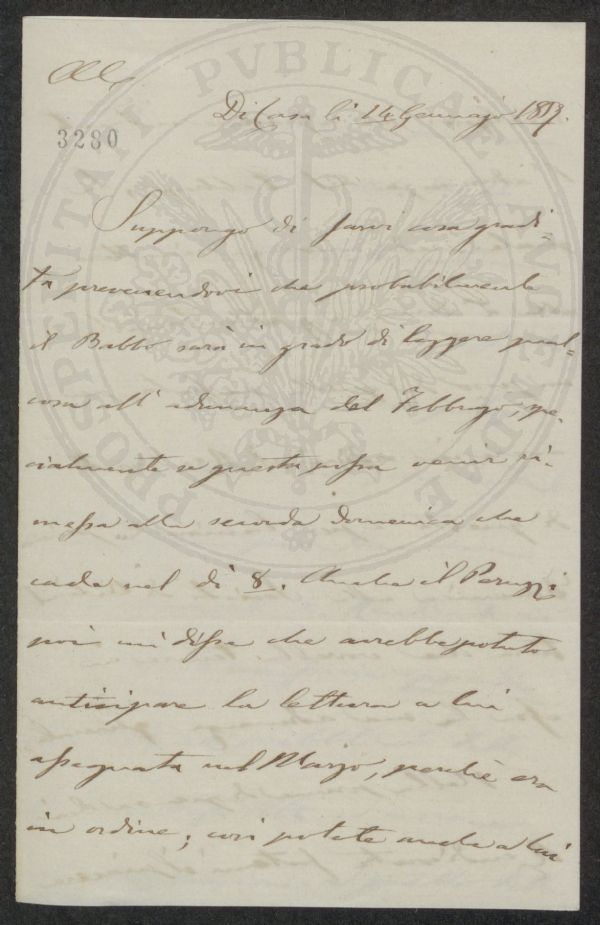 Di Casa li 14 Gennajo
3230
Suppongo di farvi cosa gradi=
ta prevenendovi che probabilmente
il Babbo sarà in grado di leggere qual=
cosa all' adunanza del Febbrajo, spe-
cialmente se questa possa venir ri-
messa alla seconda Domenica che
cade nel dì 8. Anche il Peruzzi
poi mi disse che avrebbe potuto
anticipare la lettura a lui
assegnata nel Marzo, perché era
in ordine; così potete anche a lui
PROSPERITATI PVBLICAE AVGENDAE